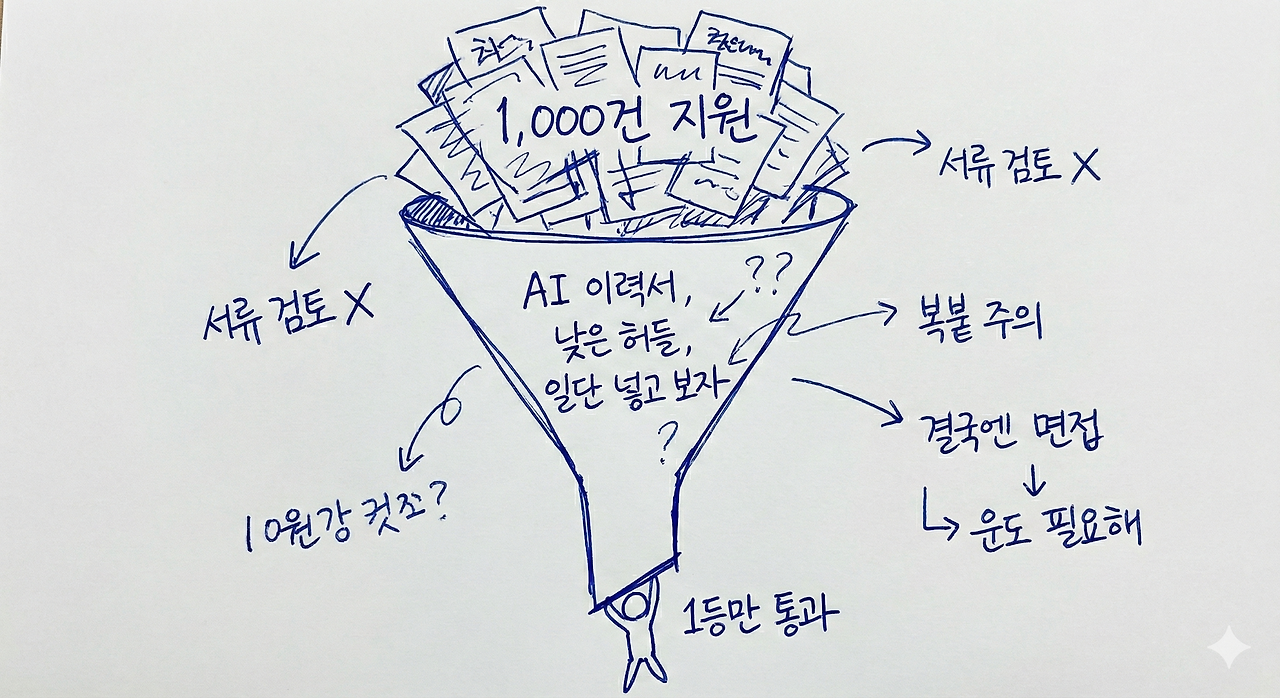 1,000건 지원
서류 검토 X
서류 검토 X
AI 이력서,
??
낮은 허들,
일단 넣고 보자
?
복붙 주의
결국엔 면접
운도 필요해
10원강 컷조?
1등만 통과